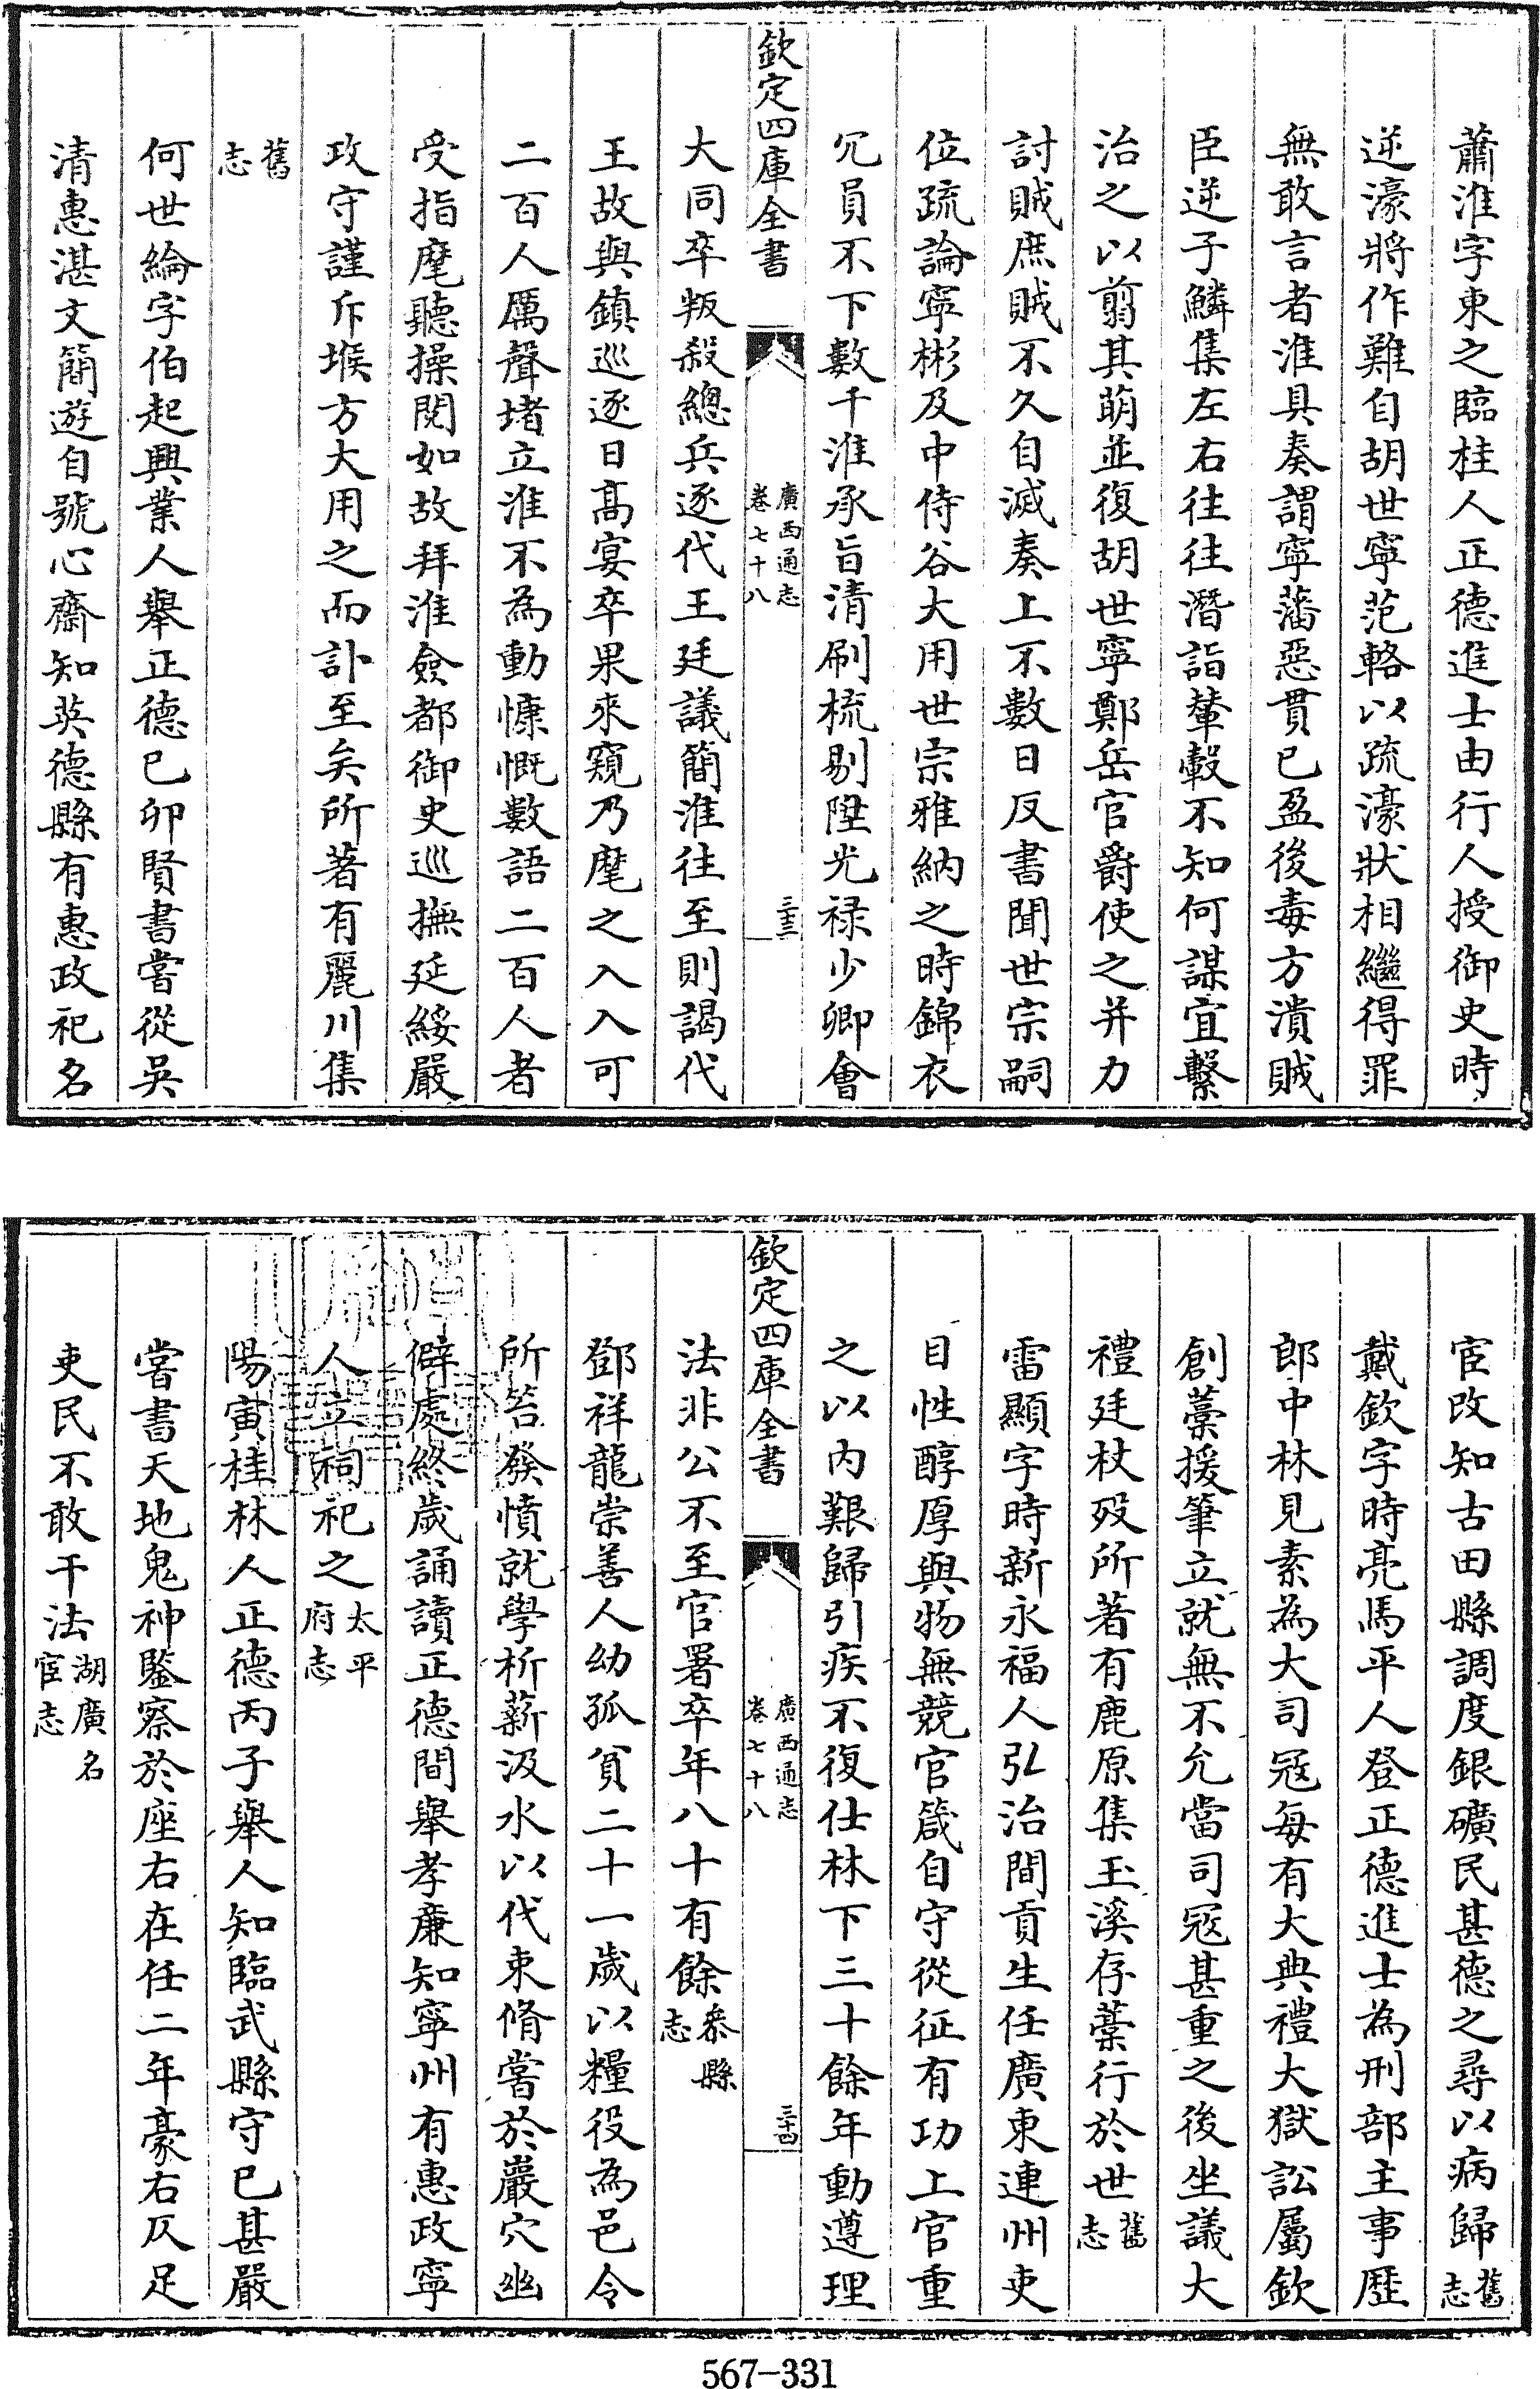 蕭淮字東之臨桂人正德進士由行人授御史時
逆濠將作難自胡世寧范輅以疏濠狀相繼得罪
無敢言者淮具奏謂寧藩惡貫已盈後毒方潰賊
臣逆子鱗集左右往往潛詣輦轂不知何謀宜繫
治之以翦其萌並復胡世寧鄭岳官爵使之并力
討賊庶賊不久自滅奏上不數日反書聞世宗嗣
位疏論寧彬及中侍谷大用世宗雅納之時錦衣
冗員不下數千淮承旨清刷梳剔陞光禄少卿會
欽定四庫全書
廣西通志
卷七十八
三十三
大同卒叛殺總兵逐代王廷議簡淮往至則謁代
王故與鎮巡逐日高宴卒果來窺乃麾之入入可
二百人厲聲堵立淮不為動慷慨數語二百人者
受指麾聽操閱如故拜淮僉都御史巡撫延綏嚴
攻守謹斥堠方大用之而訃至矣所著有麗川集
舊
志
何世綸字伯起興業人舉正德已卯賢書嘗從吳
清惠湛文簡遊自號心齋知英德縣有惠政祀名
宦改知古田縣調度銀礦民甚德之尋以病歸舊
志
戴欽字時亮馬平人登正德進士為刑部主事歴
郎中林見素為大司冦每有大典禮大獄訟屬欽
創藁援筆立就無不允當司冦甚重之後坐議大
禮廷杖殁所著有鹿原集玉溪存藁行於世舊
志
雷顯字時新永福人弘治間貢生任廣東連州吏
目性醇厚與物無競官箴自守從征有功上官重
之以内艱歸引疾不復仕林下三十餘年動遵理
欽定四庫全書
廣西通志
卷七十八
三十四
法非公不至官署卒年八十有餘叅縣
志
鄧祥龍崇善人幼孤貧二十一歲以糧役為邑令
所笞發憤就學析薪汲水以代束脩嘗於巖穴幽
僻處終歲誦讀正德間舉孝廉知寧州有惠政寧
人立祠祀之太平
府志
陽寅桂林人正德丙子舉人知臨武縣守已甚嚴
嘗書天地鬼神鑒察於座右在任二年豪右仄足
吏民不敢干法湖廣名
宦志
567-331